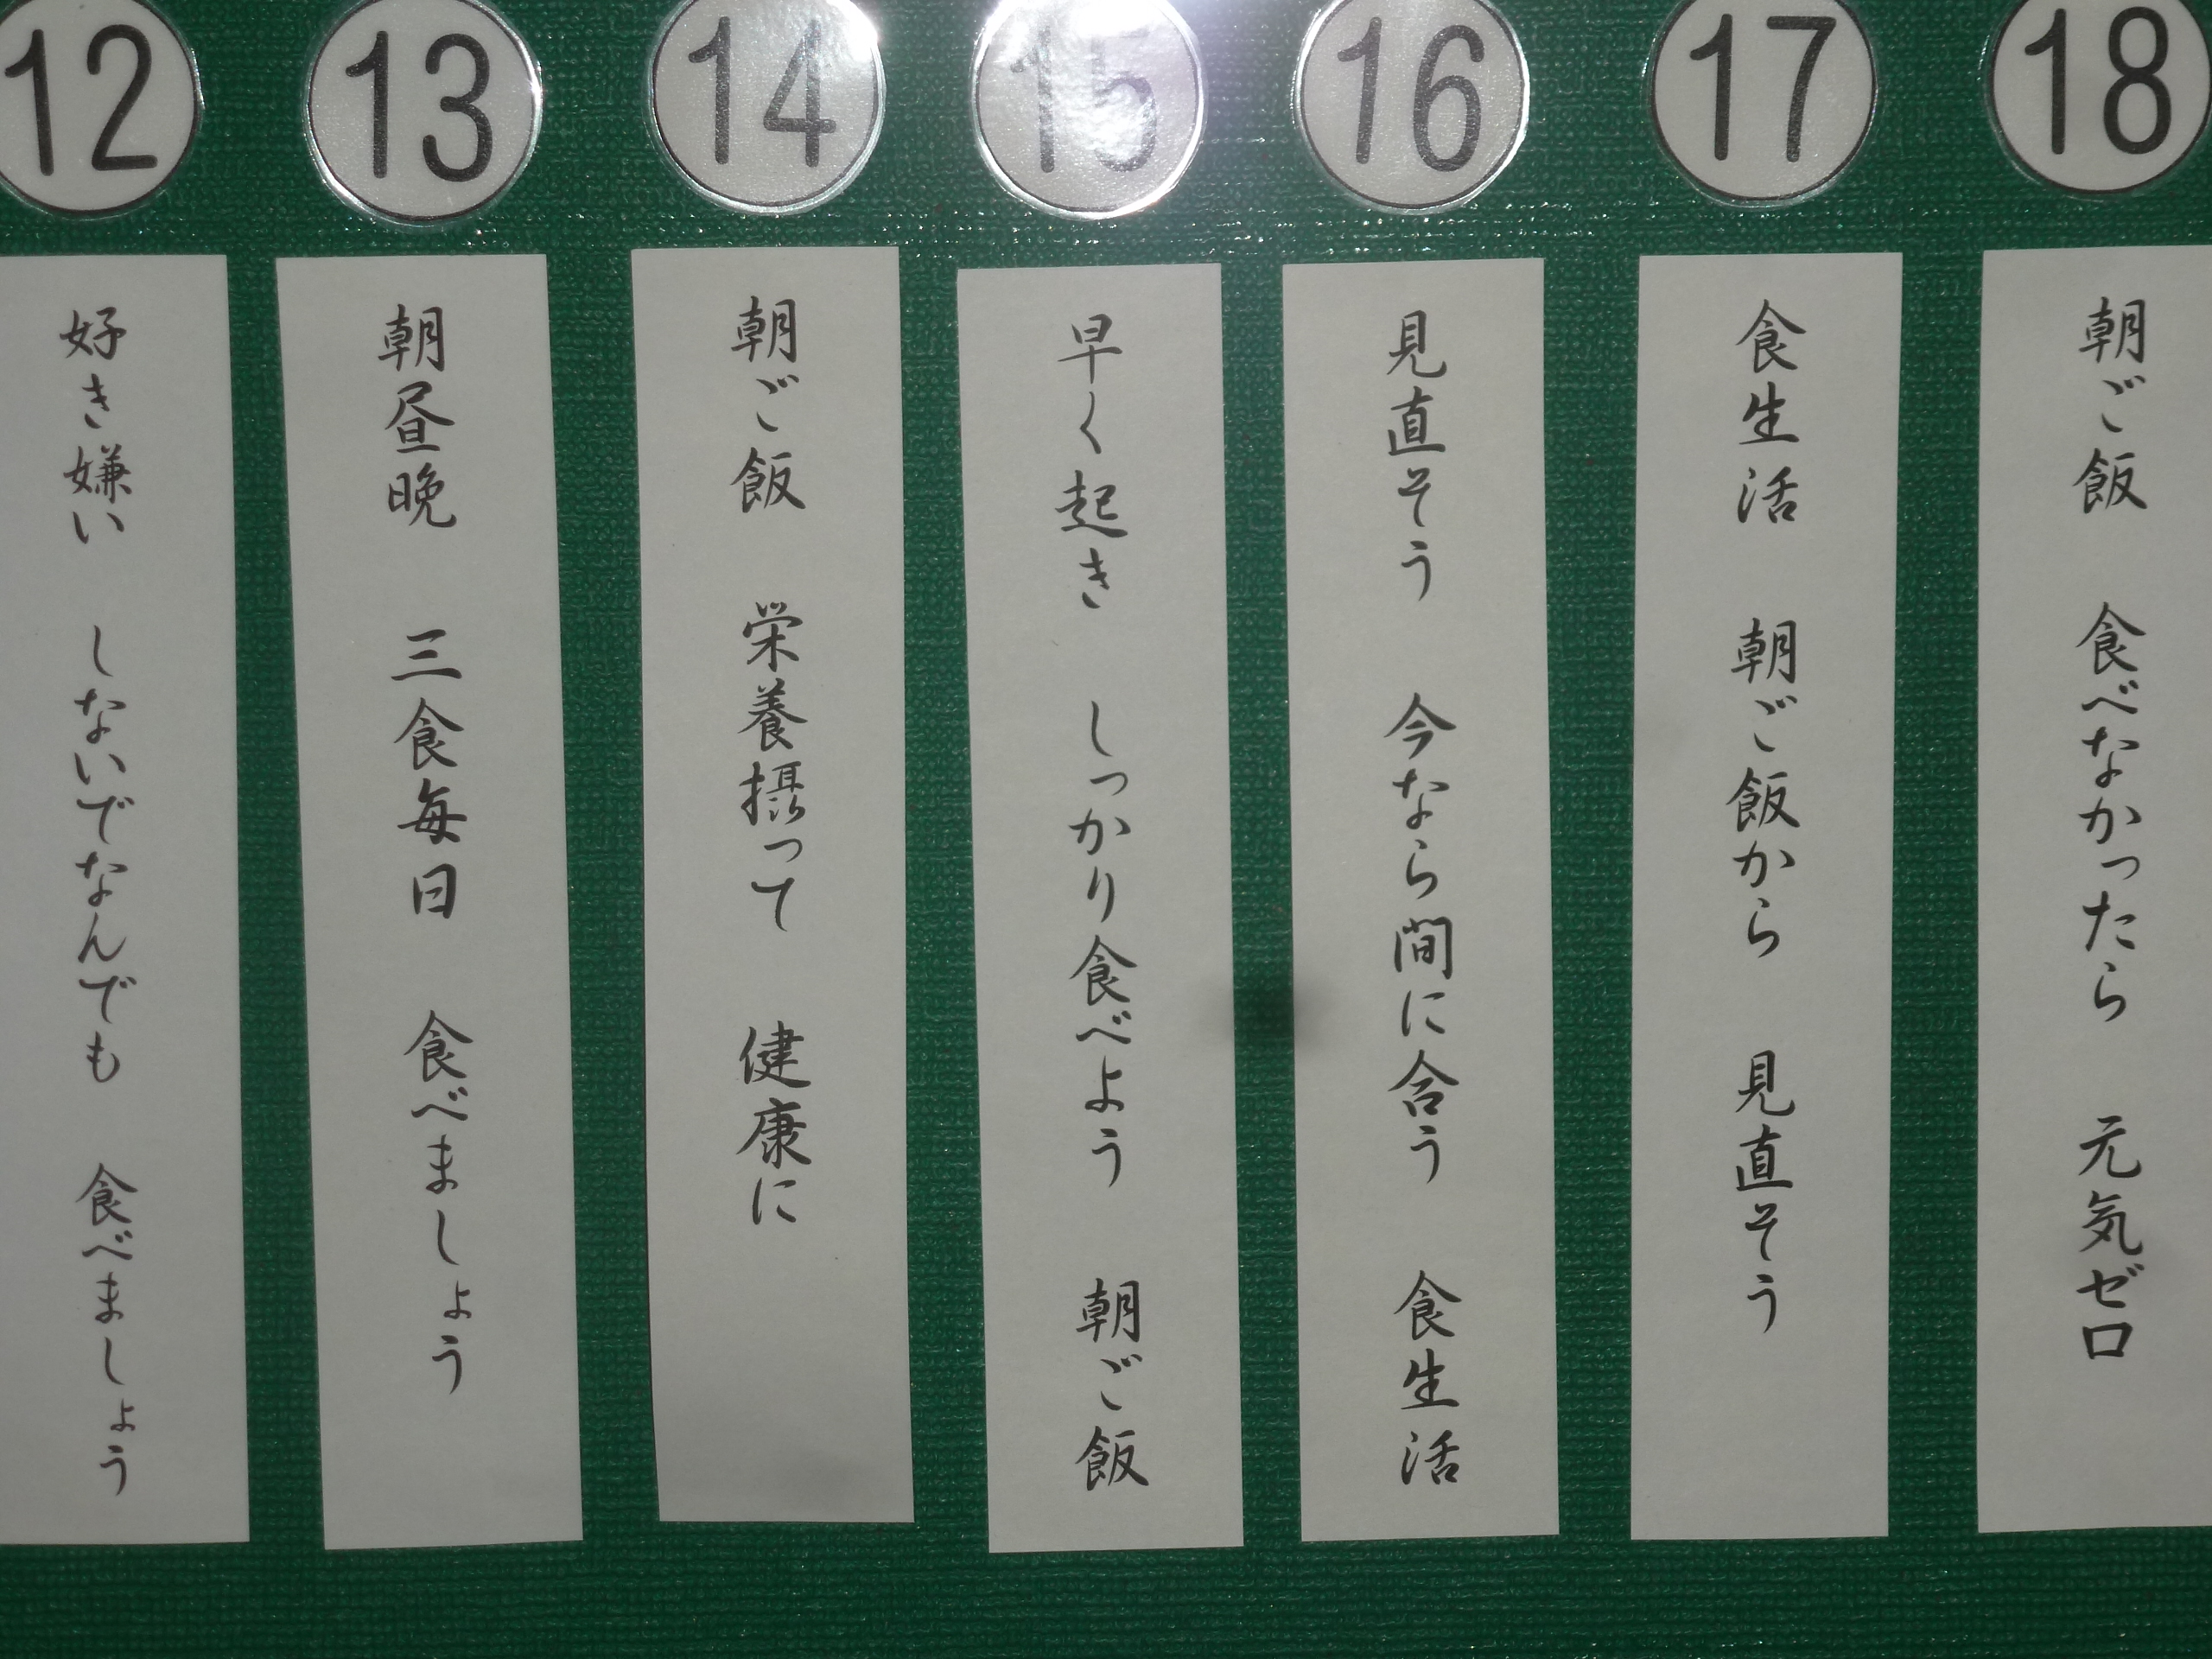 12
好き嫌い　しないでなんでも　食べましょう
13
朝昼晩　三食毎日　食べましょう
14
朝ご飯　栄養摂って　健康に
15
早く起き　しっかり食べよう　朝ご飯
16
見直そう　今なら間に合う　食生活
17
食生活　朝ご飯から　見直そう
18
朝ご飯　食べなかったら　元気ゼロ